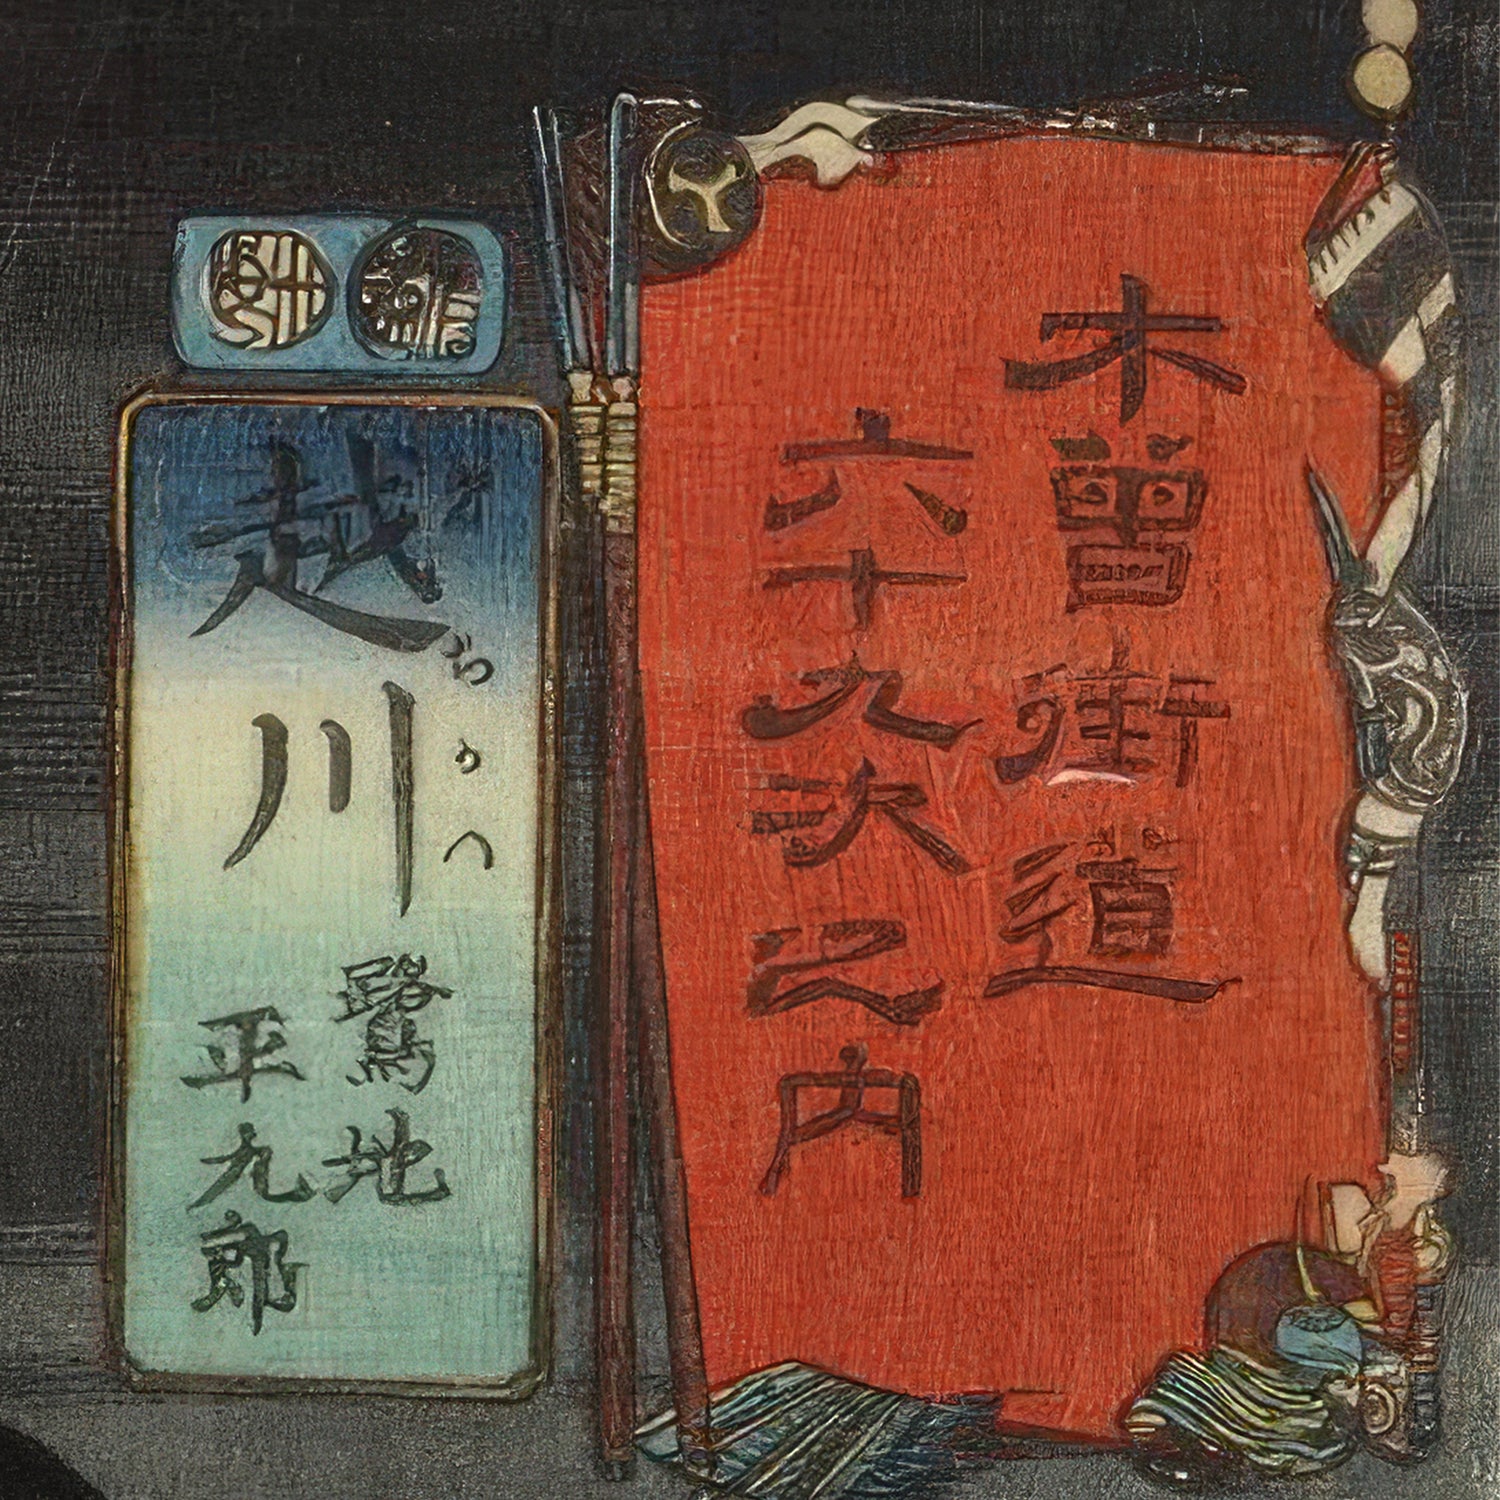 木曾街道
六十九次之内
越川
鷺地
平九郎